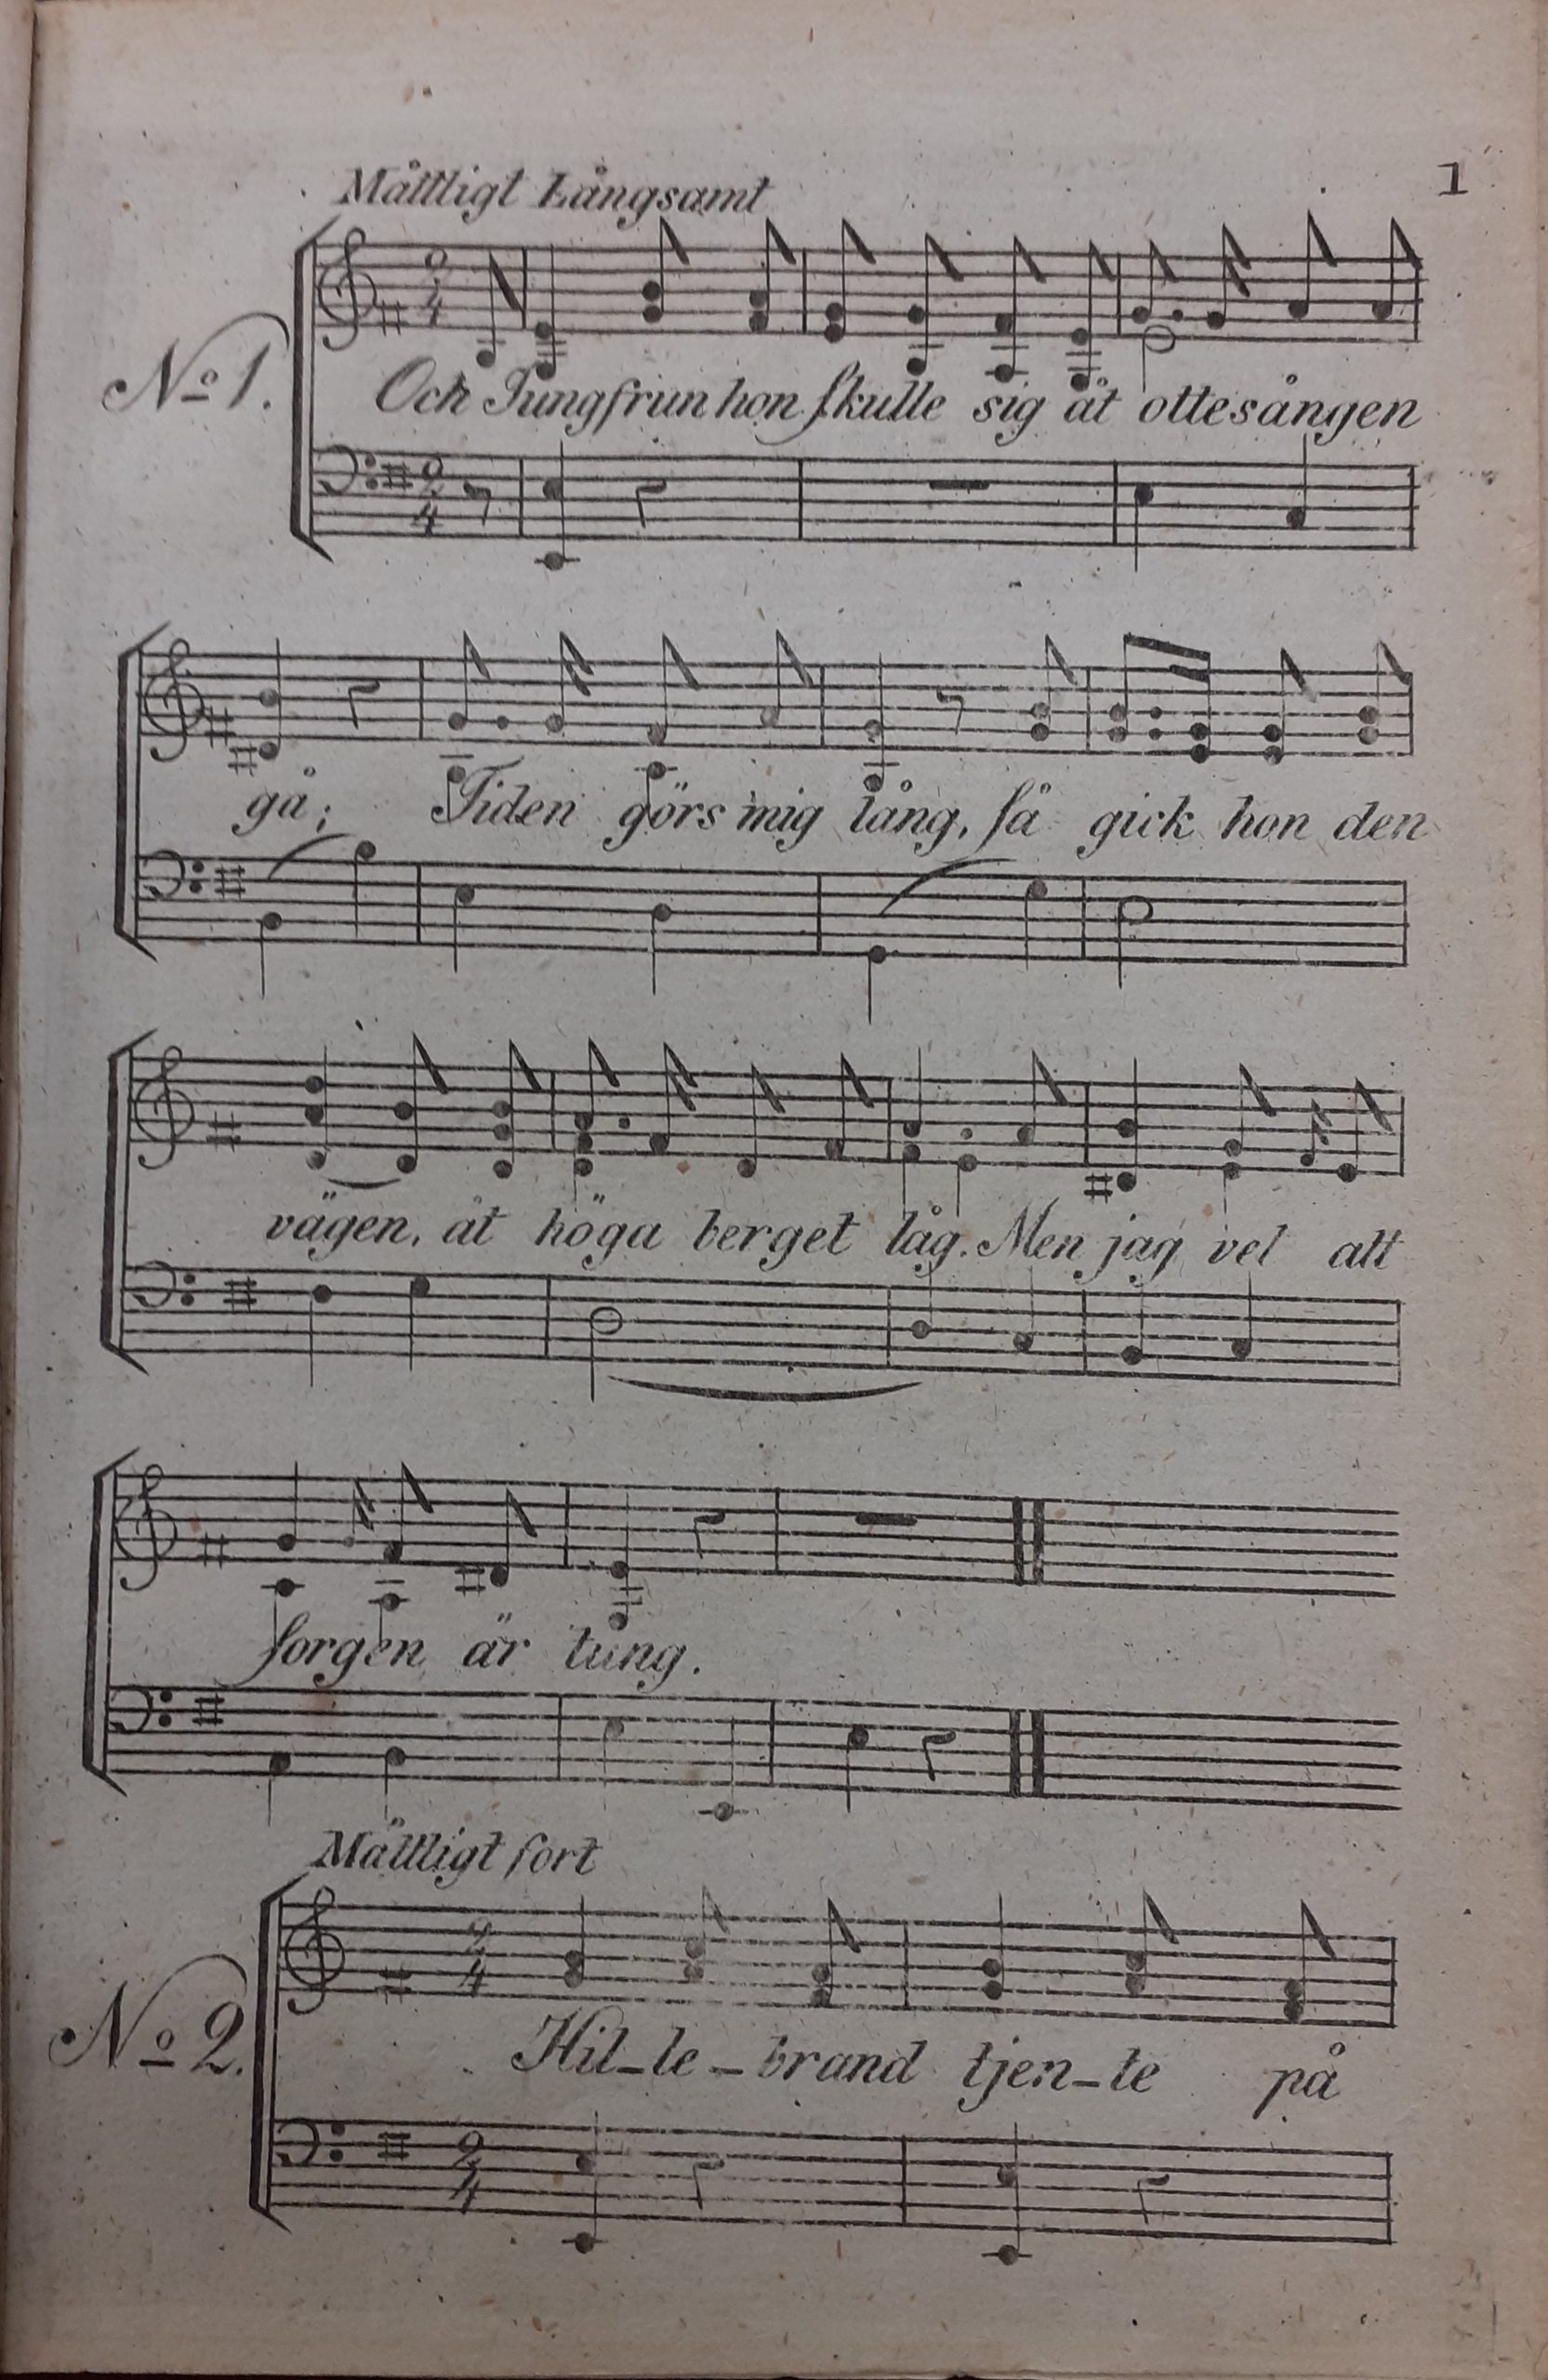 1
Måttligt Långsamt
No 1.
2/4
Och Jungfrun hon ſkulle sig åt ottesången
2/4
gå; Tiden görs mig lång, ſå gick hon den
vägen, åt höga berget låg. Men jag vet att
ſorgen är tung.
Måttligt fort
No 2.
2/4
Hil-le-brand tjen-te på
2/4